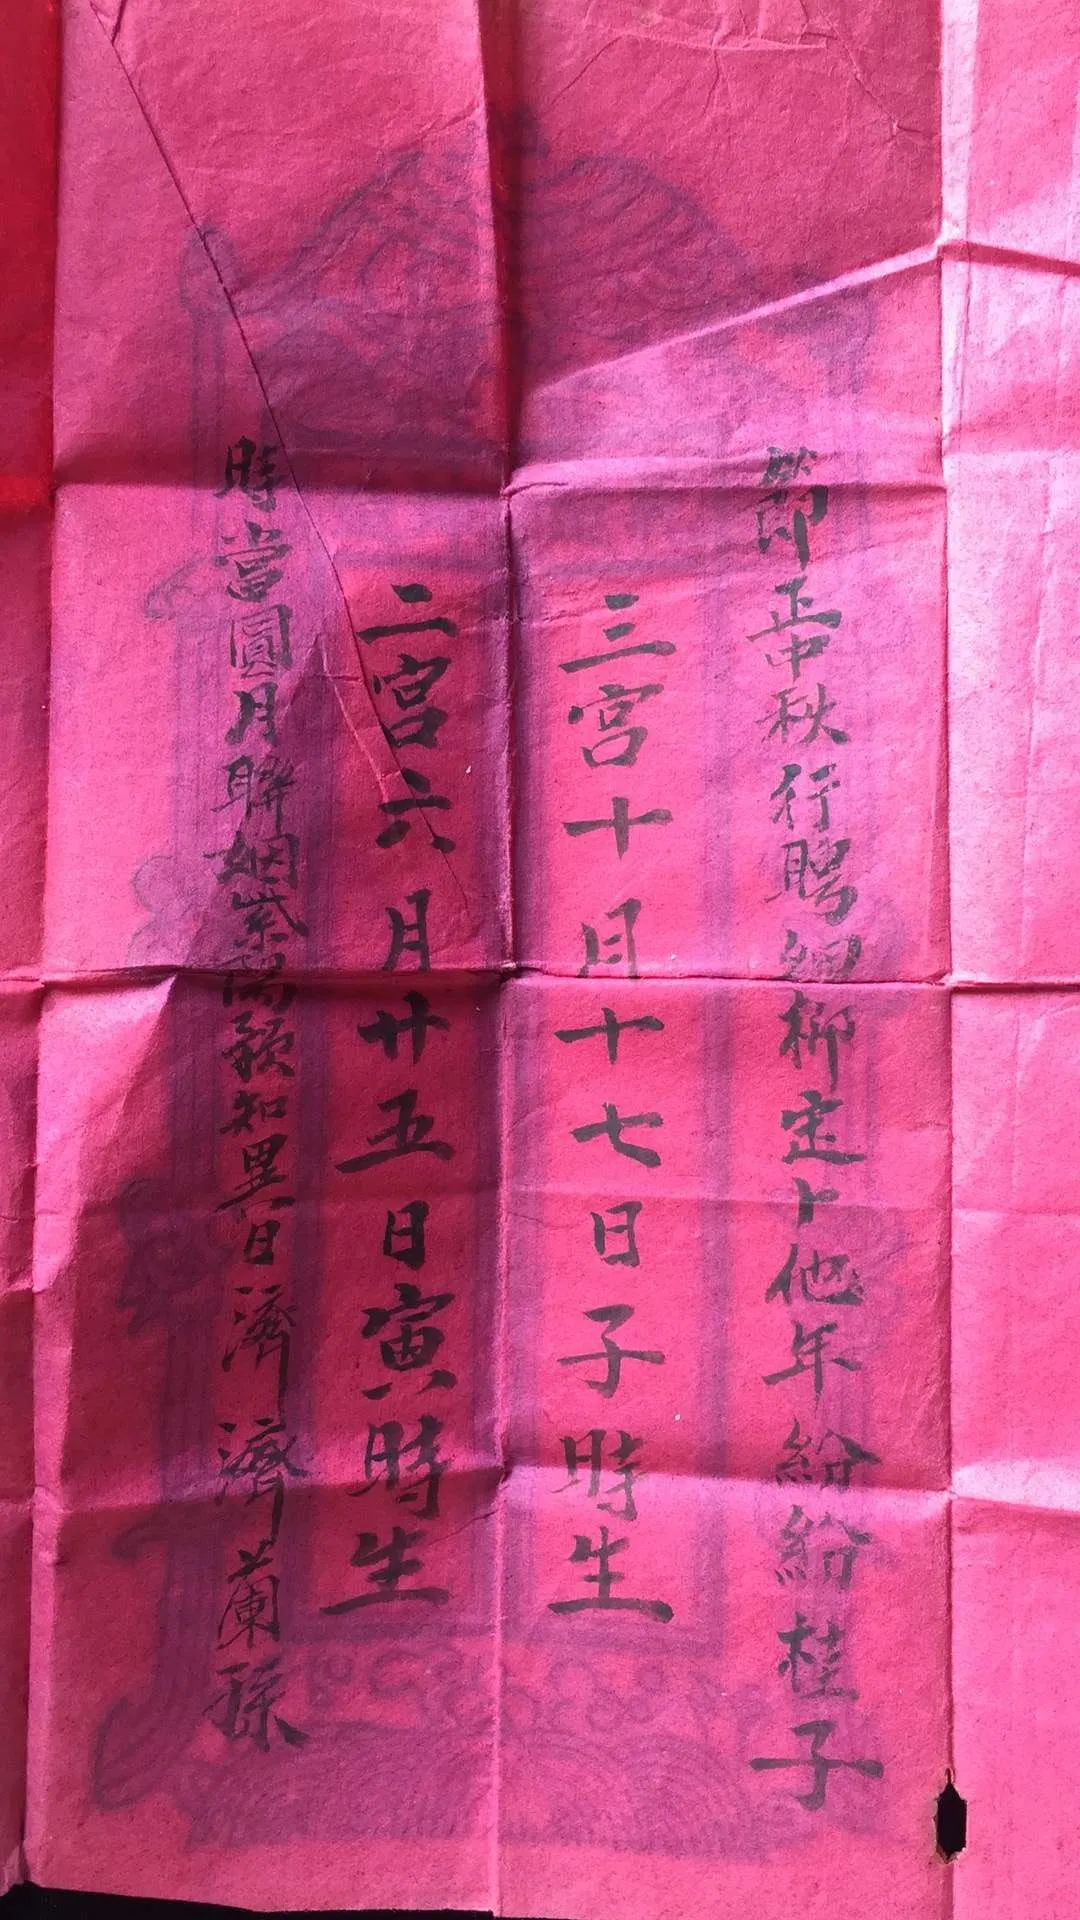 節正中秋行聘細柳定卜他年紛紛桂子
三宮十月十七日子時生
二宮六月廿五日寅時生
時當圓月聯姻紫陽預知異日濟濟蘭孫